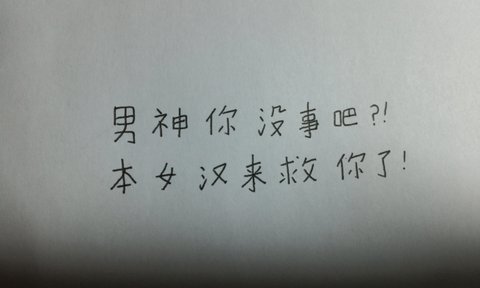 男神你没事吧?!
本女汉来救你了!